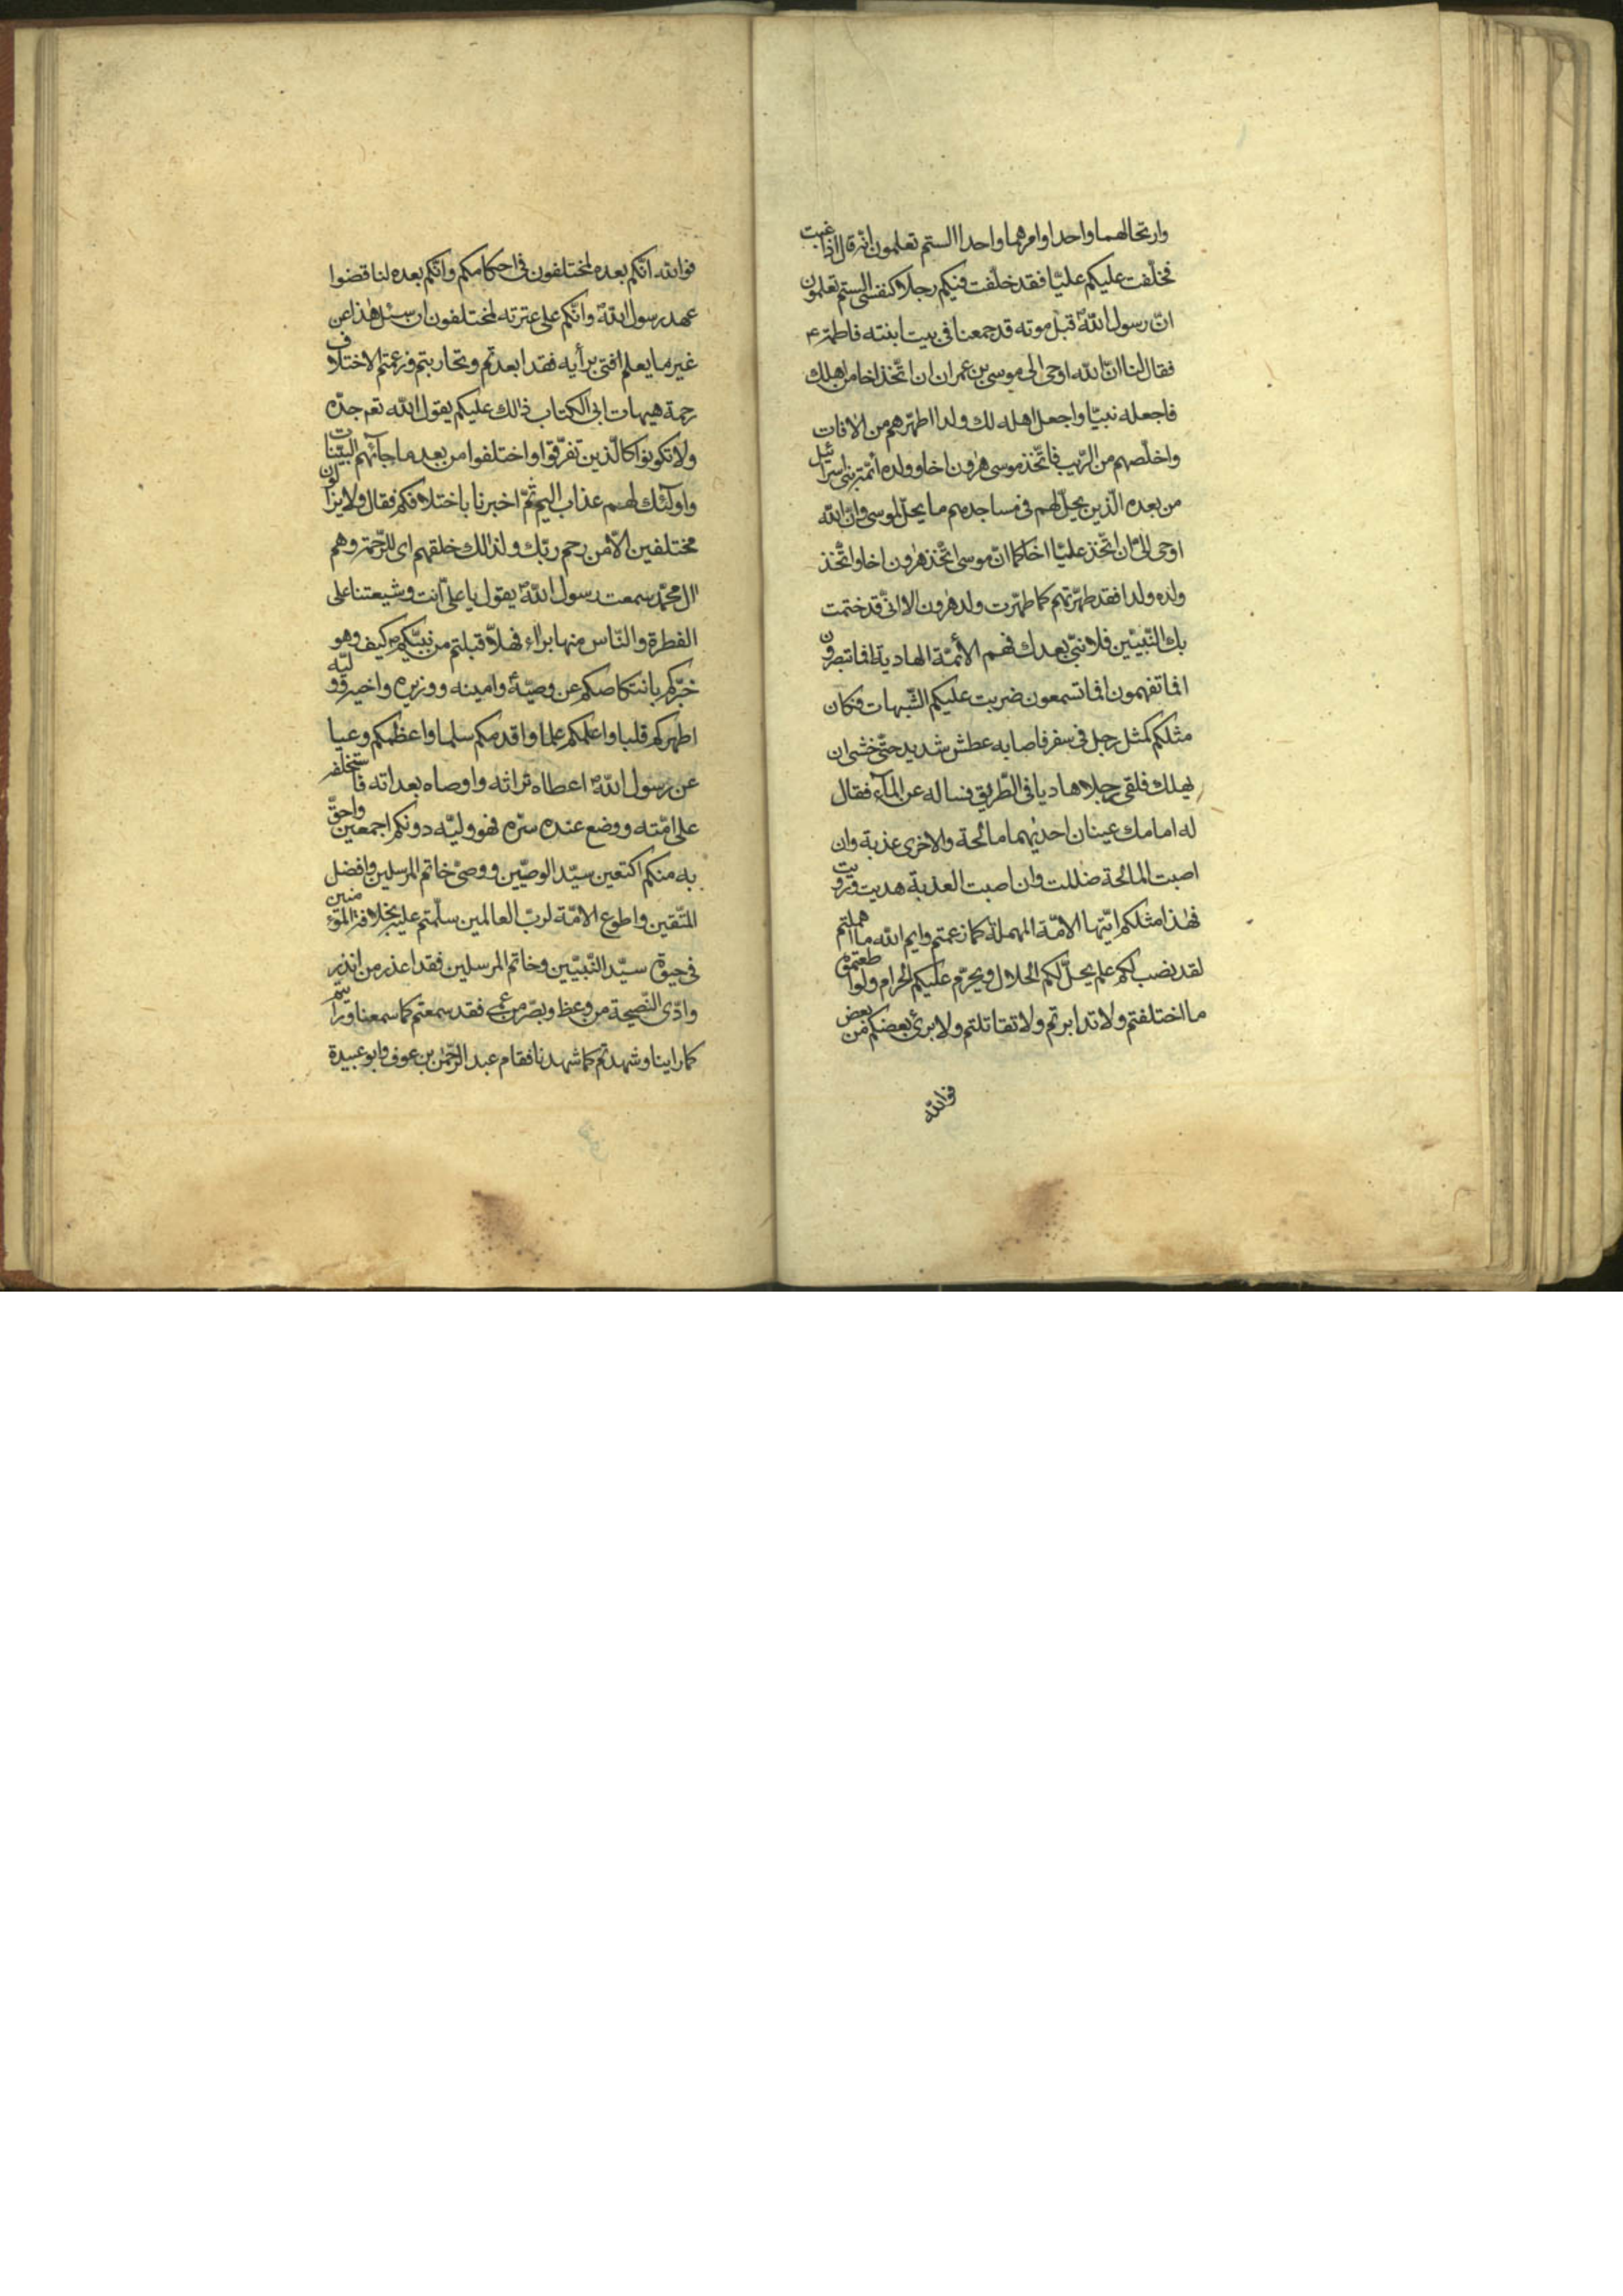 وارتحالهما واحدا وامرهما واحدا الستم تعلمون انه قال اذا غبت
فخلّفت عليكم عليّا فقد خلّفت فيكم رجلا كنفسى الستم تعلمون
انّ رسول اللّه ص قبل موته قد جمعنا فى بيت ابنته فاطمة ع
فقال لنا انّ اللّه اوحى الى موسى بن عمران ان اتّخذ اخا من اهلك
فاجعله نبيّا واجعل اهله لك ولدا اطهّرهم من الافات
واخلّصهم من الرّيب فاتّخذ موسى هٰرون اخا وولده ائمّة بنى اسرائيل
من بعده الّذين يحلّ لهم فى مساجدهم ما يحلّ لموسى وانّ اللّه
اوحى الىّ ان اتّخذ عليّا اخا كما انّ موسى اتّخذ هٰرون اخا واتّخذ
ولده ولدا فقد طهّرتهم كما طهّرت ولد هٰرون الا انّى قد ختمت
بك النّبيّين فلا نبىّ بعدك فهم الأئمّة الهادية افما تبصرون
افما تفهمون افما تسمعون ضربت عليكم الشّبهات فكان
مثلكم كمثل رجل فى سفر فاصابه عطش شديد حتّى خشى ان
يهلك فلقى رجلا هاديا فى الطّريق فساله عن المآء فقال
له امامك عينان احديٰهما مالحة والاخرى عذبة وان
اصبت المالحة ضللت وان اصبت العذبة هديت ورويت
فهٰذا مثلكم ايّتها الامّة المهملة كما زعمتم وايم اللّه ما اهملتم
لقد نصب لكم علم يحلّ لكم الحلال ويحرّم عليكم الحرام ولو اطعتموه
ما اختلفتم ولا تدابرتم ولا تقاتلتم ولا برئ بعضكم من بعض
فواللّه
فواللّه انّكم بعده لمختلفون فى احكامكم وانّكم بعده لناقضوا
عهد رسول اللّه ص وانّكم على عترته لمختلفون ان سئل هٰذا عن
غير ما يعلم افتى برأيه فقد ابعدتم وتحاربتم وزعمتم الاختلاف
رحمة هيهات ابى الكتاب ذٰلك عليكم يقول اللّه تعم جدّه
ولا تكونوا كالّذين تفرّقوا واختلفوا من بعد ما جآئهم البيّنات
واولٓئك لهم عذاب اليم ثمّ اخبرنا باختلافكم فقال ولا يزالون
مختلفين الّا من رحم ربّك ولذٰلك خلقهم اى للرّحمة وهم
ال محمّد سمعت رسول اللّه ص يقول يا علىّ انت وشيعتنا على
الفطرة والنّاس منها برآء فهلّا قبلتم من نبيّكم ص كيف وهو
خبّركم بانتكاصكم عن وصيّه وامينه ووزيره واخيه ووليّه
اطهركم قلبا واعلمكم علما واقدمكم سلما واعظمكم وعيا
عن رسول اللّه ص اعطاه تراثه واوصاه بعداته فاستخلفه
على امّته ووضع عنده سرّه فهو وليّه دونكم اجمعين واحقّ
به منكم اكتعين سيّد الوصيّين ووصىّ خاتم المرسلين وافضل
المتّقين واطوع الامّة لربّ العالمين سلّمتم عليه بخلافة المؤمنين
فى حيوة سيّد النّبيّين وخاتم المرسلين فقد اعذر من انذر
وادّى النّصيحة من وعظ وبصّر من عمى فقد سمعتم كما سمعنا ورايتم
كما راينا وشهدتم كما شهدنا فقام عبد الرّحمٰن بن عوف وابو عبيدة